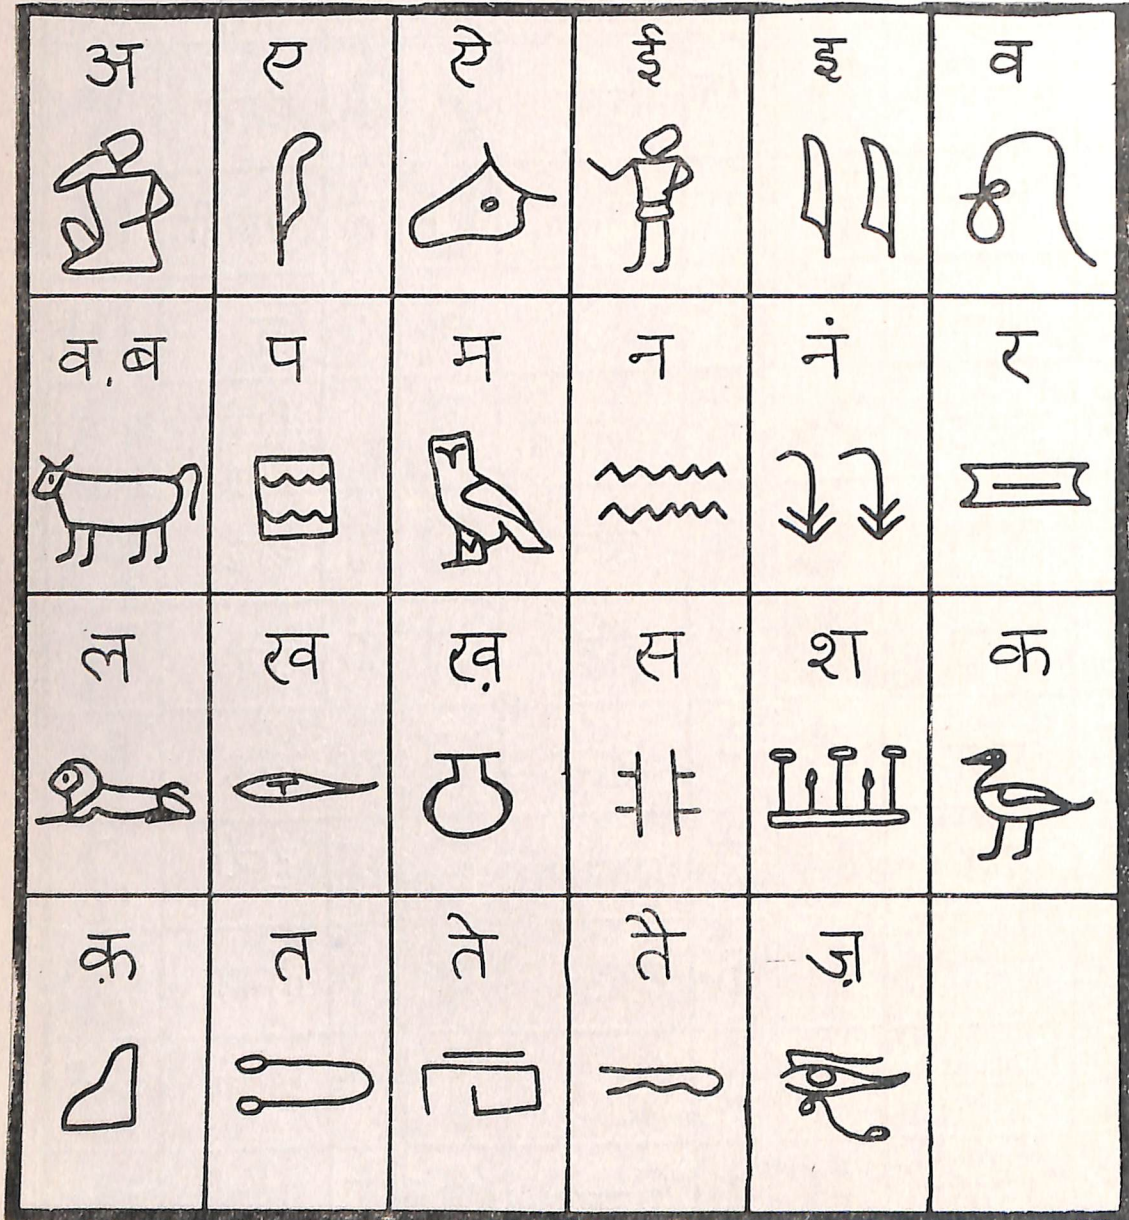 अ ए ऐ ई इ व
व,ब प म न नं र
ल ख ख़ स श क
क़ त ते तै ज़